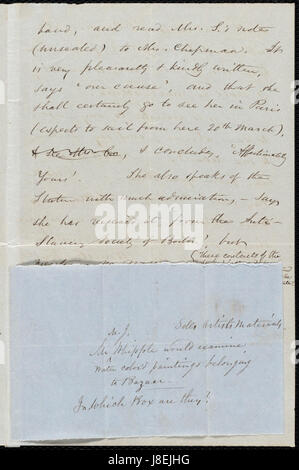 hand, and read Mrs. S.'s note
(unsealed) to Mrs. Chapman. It
is very pleasantly & kindly written,
says "our cause", and that she
shall certainly go to see her in Paris
(expects to sail from here 20th March),
& concludes, "Affectionately
Yours". She also speaks of the
with much admiration, – says
she has it from the Anti-
Slavery Society of Boston! but
(these contents of the
Sells artists Materials.
M. J.
Mr Whipple would examine
Water color paintings belonging
to Bazaar.
In which Box are they?
alamy
J8EJHG
www.alamy.com